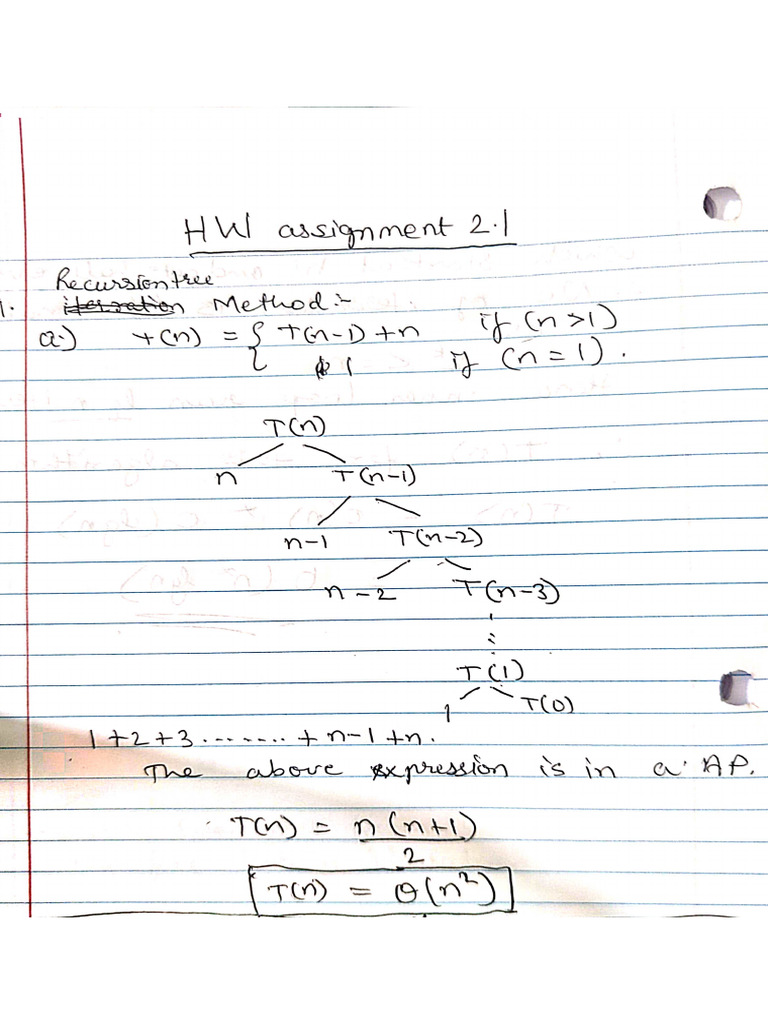 HW assignment 2.1
Recursiontree
1. iteration Method:-
a.) T(n) = { T(n-1) + n if (n > 1)
{ 1 if (n = 1).
T(n)
n T(n-1)
n-1 T(n-2)
n-2 T(n-3)
T(1)
1 T(0)
1+2+3.......+n-1+n.
The above expression is in a AP.
T(n) = n(n+1)
2
T(n) = θ(n²)